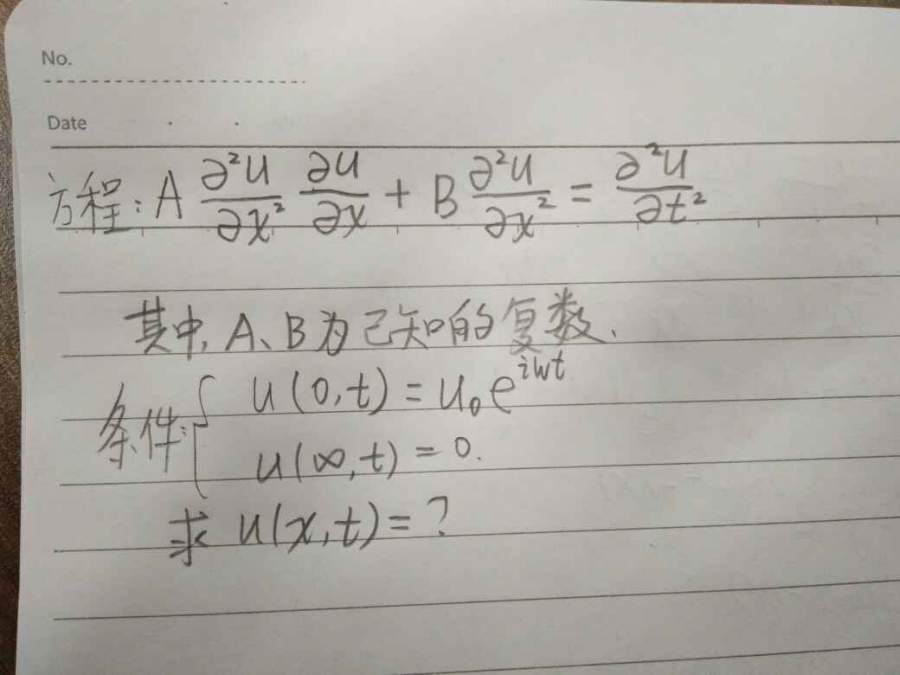 No.
Date
方程: A ∂²u/∂x² ∂u/∂x + B ∂²u/∂x² = ∂²u/∂t²
其中, A、B为已知的复数.
条件: { u(0,t) = u₀e^{iwt}
u(∞,t) = 0.
求 u(x,t) = ?